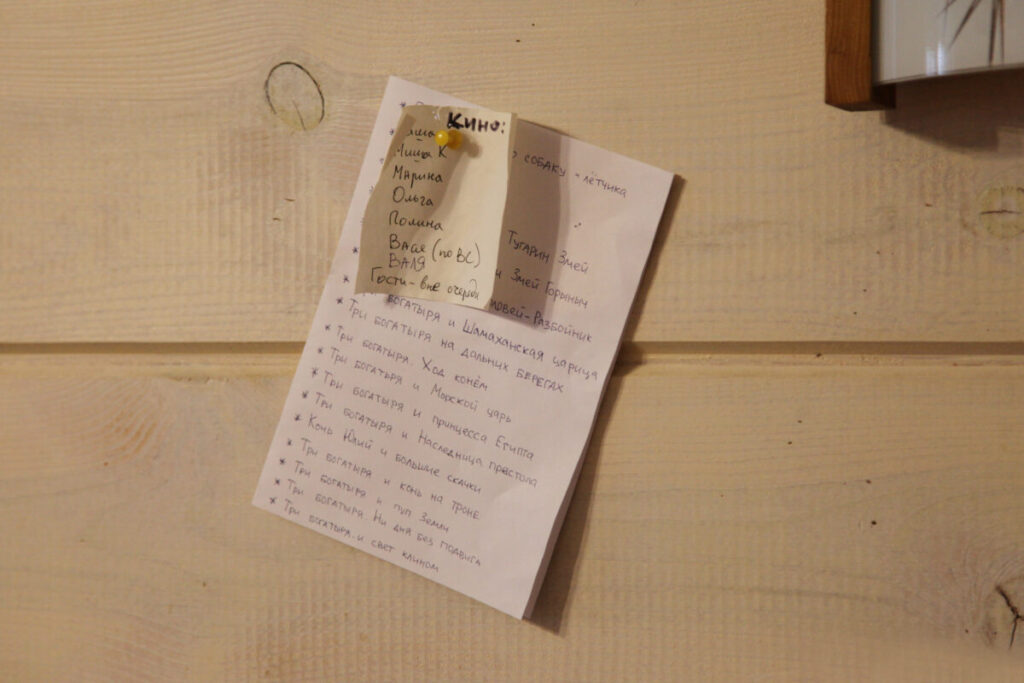 Кино:
Миша К
Марина
Ольга
Полина
Вася (по ВС)
ВАЛЯ
Гости - вне очереди
собаку - лётчика
Тугарин Змей
и Змей Горыныч
ловей-Разбойник
богатыря и Шамаханская царица
* Три богатыря на дальних берегах
* Три богатыря. Ход конём
* Три богатыря и Морской царь
* Три богатыря и принцесса Египта
* Три богатыря и Наследница престола
* Конь Юлий и большие скачки
* Три богатыря и конь на троне
* Три богатыря и пуп Земли
* Три богатыря Ни дня без подвига
* Три богатыря и свет клином